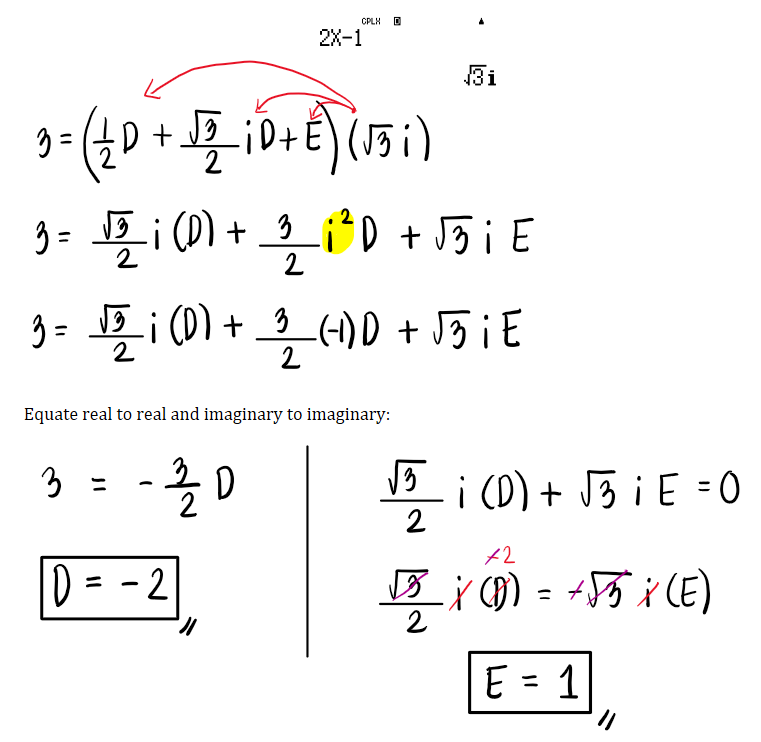 CPLX D ▲
2X-1
√3i
3 = (1/2 D + √3/2 i D + E)(√3 i)
3 = √3/2 i (D) + 3/2 i² D + √3 i E
3 = √3/2 i (D) + 3/2 (-1) D + √3 i E
Equate real to real and imaginary to imaginary:
3 = - 3/2 D
D = -2
√3/2 i (D) + √3 i E = 0
+2
√3/2 i (D) = +√3 i (E)
E = 1